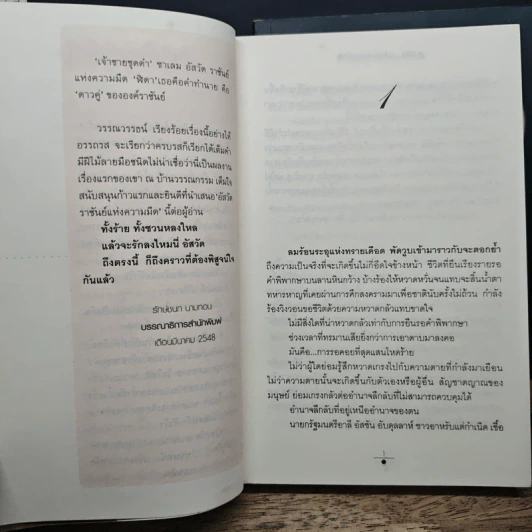 'เจ้าชายชุดดำ' ซาเลม อัสวัด ราชันย์
แห่งความมืด 'ฟิดา' เธอคือคำทำนาย คือ
'ดาวคู่' ขององค์ราชันย์
วรรณวรรธน์ เรียงร้อยเรื่องนี้อย่างได้
อรรถรส จะเรียกว่าครบรสก็เรียกได้เต็มคำ
มีฝีไม้ลายมือชนิดไม่น่าเชื่อว่านี่เป็นผลงาน
เรื่องแรกของเขา ณ บ้านวรรณกรรม เต็มใจ
สนับสนุนก้าวแรกและยินดีที่นำเสนอ 'อัสวัด
ราชันย์แห่งความมืด' นี้ต่อผู้อ่าน
ทั้งร้าย ทั้งชวนหลงใหล
แล้วจะรักลงไหมนี่ อัสวัด
ถึงตรงนี้ ก็ถึงคราวที่ต้องพิสูจน์ใจ
กันแล้ว
รักชนก นามทอน
บรรณาธิการสำนักพิมพ์
เดือนมีนาคม 2548
1
ลมร้อนระอุแห่งทรายเดือด พัดวูบเข้ามาราวกับจะตอกย้ำ
ถึงความเป็นจริงที่จะเกิดขึ้นไม่กี่อึดใจข้างหน้า ชีวิตที่ยืนเรียงรายรอ
คำพิพากษาบนลานหินกว้าง บ้างร้องไห้หวาดหวั่นจนแทบจะสิ้นน้ำตา
ทหารหาญที่เคยผ่านการศึกสงครามมาเพื่อชาตินับครั้งไม่ถ้วน กำลัง
ร้องวิงวอนขอชีวิตด้วยความหวาดกลัวแทบขาดใจ
ไม่มีสิ่งใดที่น่าหวาดกลัวเท่ากับการยืนรอคำพิพากษา
ช่วงเวลาที่ทรมานเสียยิ่งกว่าการเอาดาบมาลงคอ
มันคือ...การรอคอยที่สุดแสนโหดร้าย
ไม่ว่าผู้ใดย่อมรู้สึกหวาดเกรงไปกับความตายที่กำลังมาเยือน
ไม่ว่าความตายนั้นจะเกิดขึ้นกับตัวเองหรือผู้อื่น สัญชาตญาณของ
มนุษย์ ย่อมเกรงกลัวต่ออำนาจลึกลับที่ไม่สามารถควบคุมได้
อำนาจลึกลับที่อยู่เหนืออำนาจของตน
นายกรัฐมนตรีอาลี อัสซัน อับดุลลาห์ ชาวอาหรับแต่กำเนิด เชื้อ
1